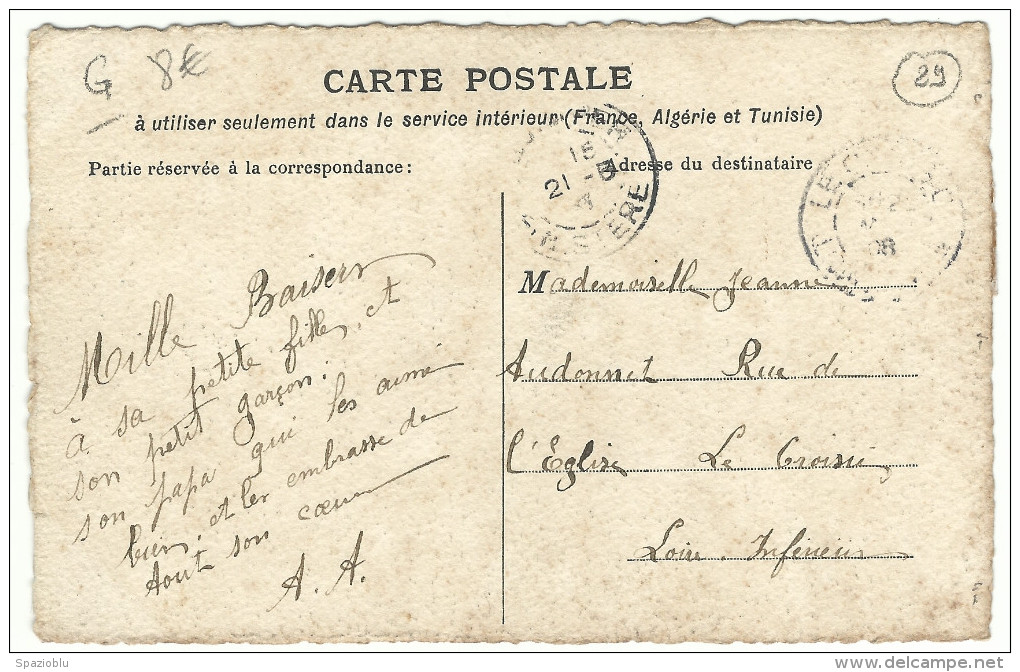 G 8€
29
CARTE POSTALE
à utiliser seulement dans le service intérieur (France, Algérie et Tunisie)
Partie réservée à la correspondance :
Adresse du destinataire
15
21 -3
FINISTERE
LE
08
Mille Baisers
à sa petite fille, et
son petit garçon.
son papa qui les aime
bien, et les embrasse de
tout son coeur
A. A.
Mademoiselle Jeanne
Audonnet Rue de
l'Eglise Le Croisic
Loire Inférieure
Spazioblu
www.delcampe.net